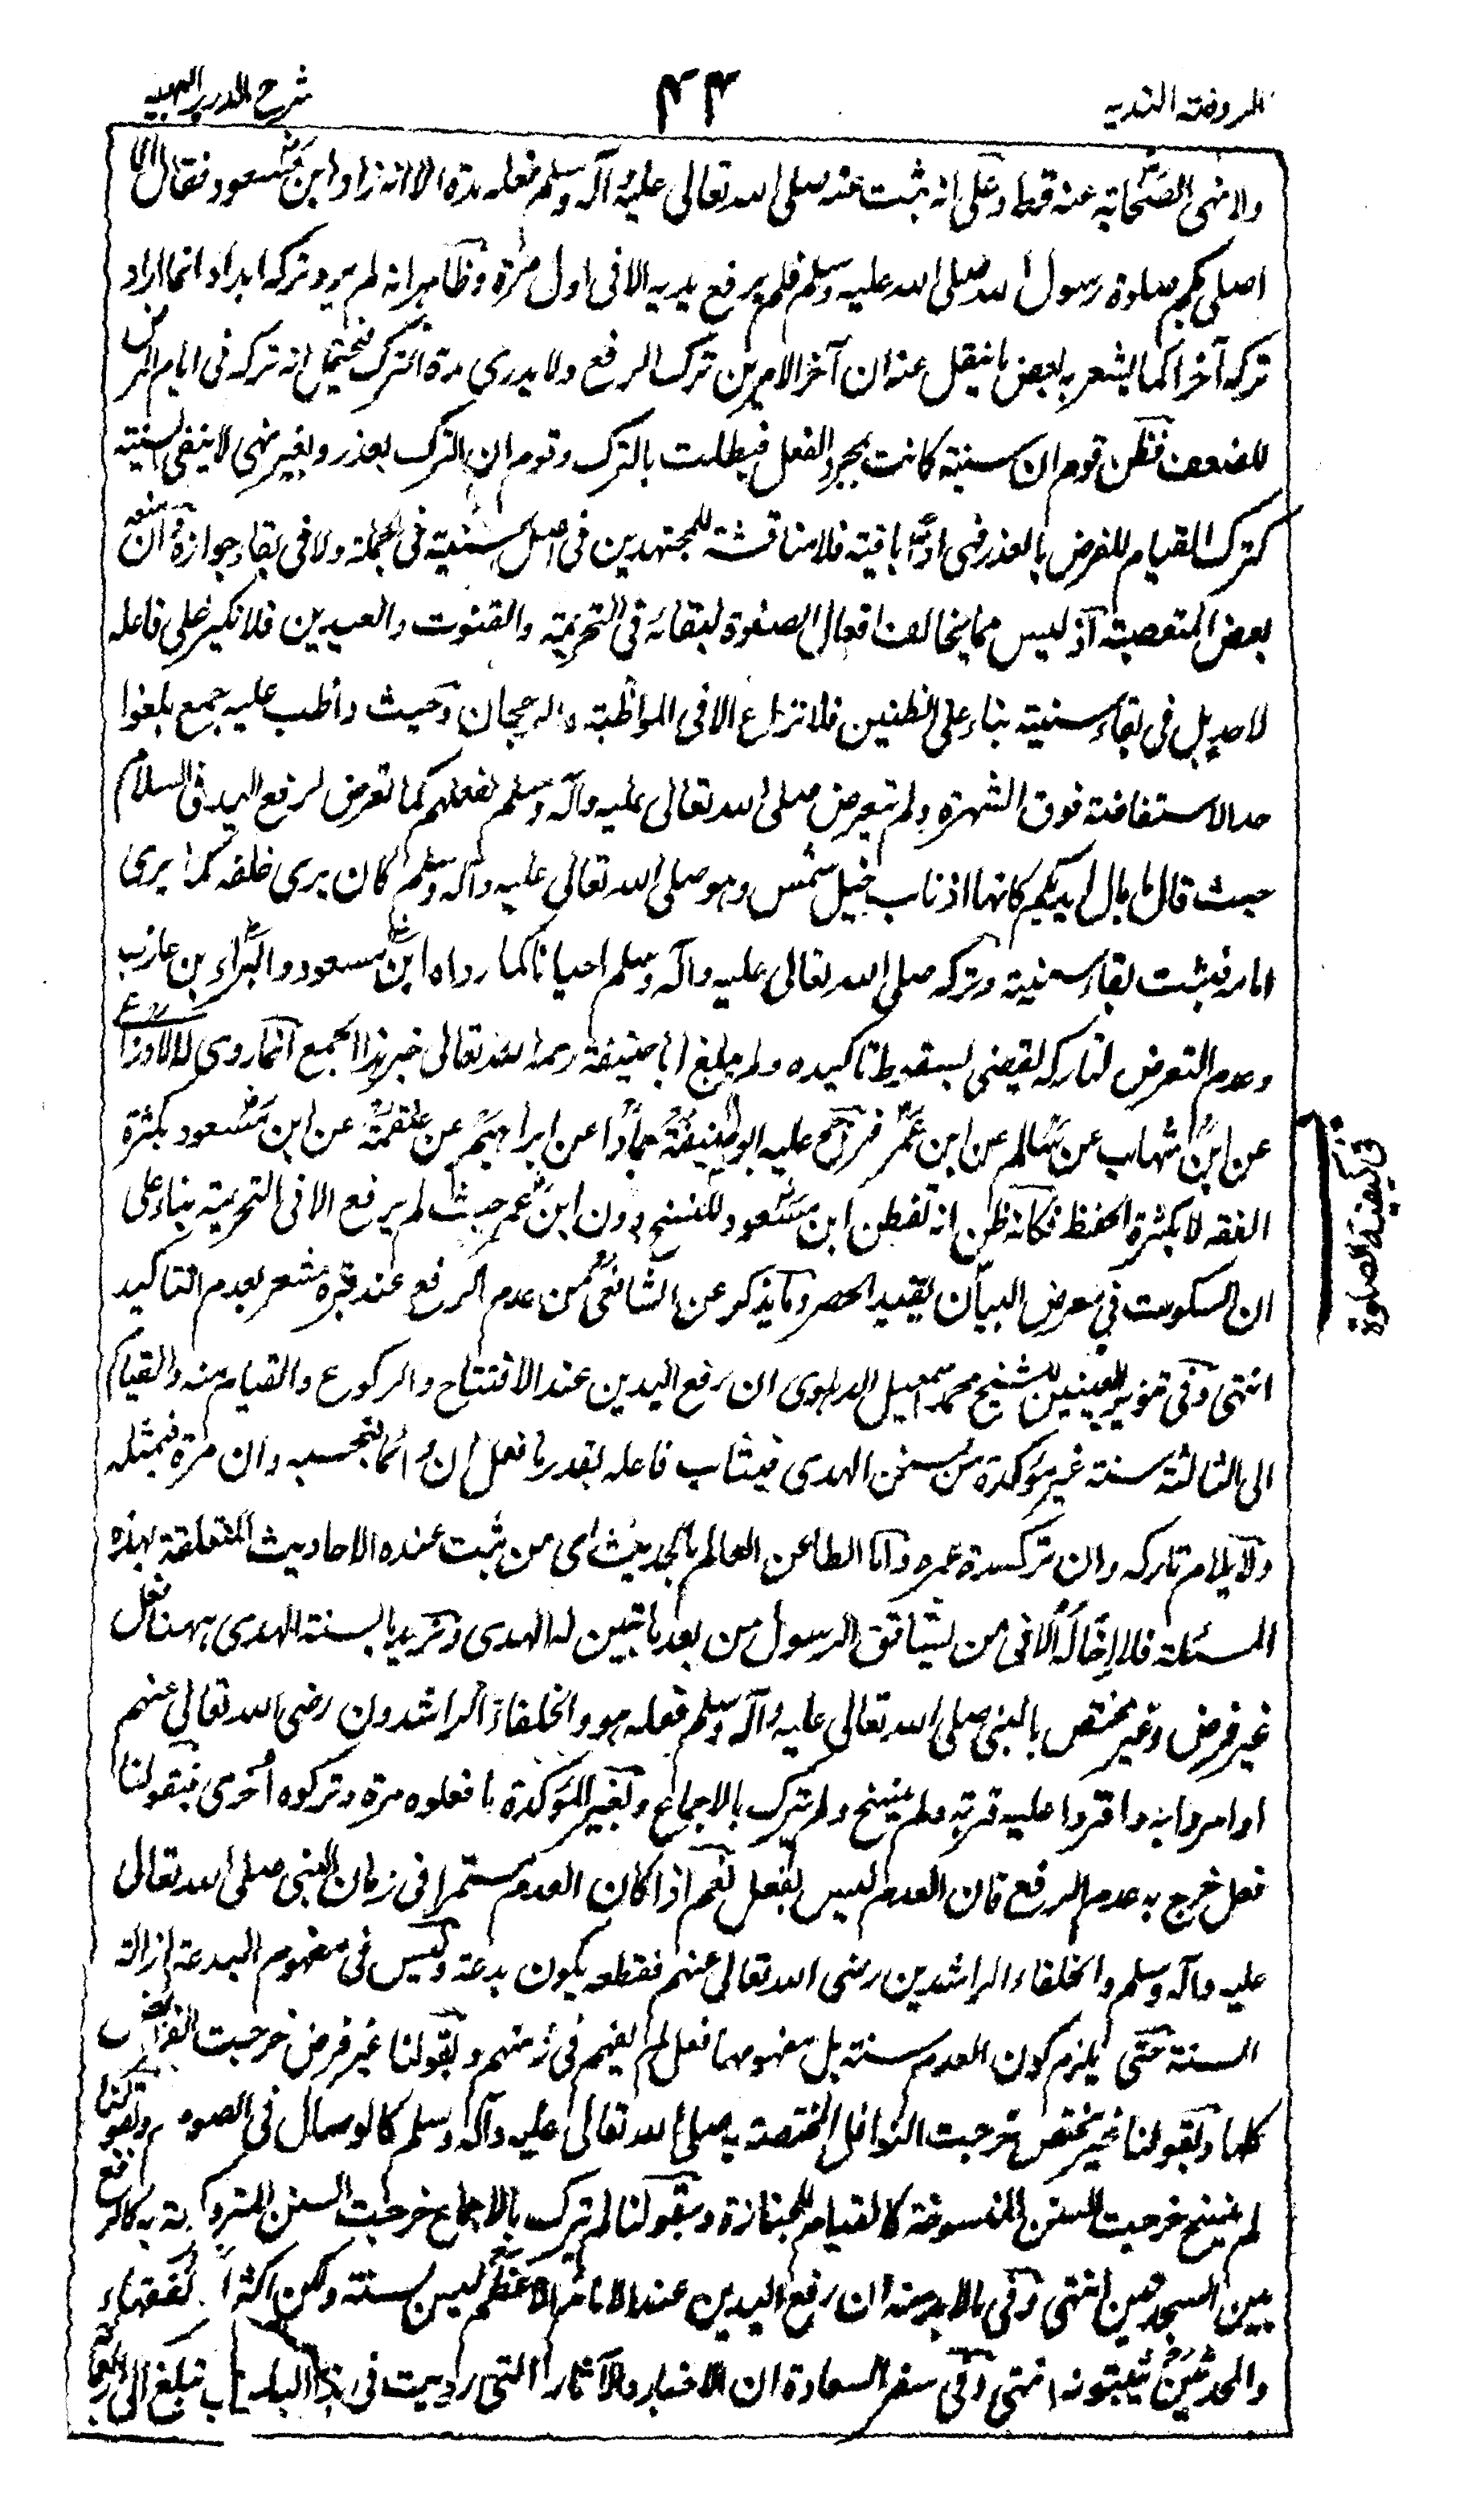 الروضة الندیه
۴۴
شرح الدرر البهیه
ولا نهى الصحابة عنه قط وعلى انه ثبت عنه صلى الله تعالى عليه وآله وسلم فعله مدة الا انه زاد ابن مسعود فقال الا
اصلى بكم صلوة رسول الله صلى الله عليه وسلم فلم يرفع يديه الا فى اول مرة وظاهر انه لم يرد تركه ابدا وانما اراد
تركه آخرا كما يشعر به بعض ما ينقل عنه ان آخر الامرين ترك الرفع ولا يدرى مدة الترك فيحتمل انه تركه فى ايام المرض
للضعف فظن قوم ان سنيته كانت بمجرد الفعل فبطلت بالترك وقوم ان الترك بعذر وبغير نهى لا ينفى السنية
كترك القيام للفرض بالعذر فهى اذا باقية فلا مناقشة للمجتهدين فى اصل سنيته فى الجملة ولا فى بقاء جوازه وان منعه
بعض المتعصبة اذ ليس مما يخالف افعال الصلوة لبقائه فى التحريمة والقنوت والعيدين فلا نكير على فاعله
لاحد بل فى بقاء سنيته بناء على الظنين فلا نزاع الا فى المواظبة والرجحان وحيث واظب عليه جمع بلغوا
حد الاستفاضة فوق الشهرة ولم يتعرض صلى الله تعالى عليه وآله وسلم لفعلهم كما تعرض لرفع اليد فى السلام
حيث قال ما بال ايديكم كانها اذناب خيل شمس وهو صلى الله تعالى عليه وآله وسلم كان يرى خلفه كما يرى
امامه فيثبت بقاء سنيته وتركه صلى الله تعالى عليه وآله وسلم احيانا كما رواه ابن مسعود والبراء بن عازب
وعدم التعرض لتاركه يقضى بسقوط تاكيده ولم يبلغ ابا حنيفة رحمه الله تعالى خبر هذا الجمع انما روى له الاوزاعى
عن ابن شهاب عن سالم عن ابن عمر فرجح عليه ابو حنيفة حمادا عن ابراهيم عن علقمة عن ابن مسعود بكثرة
الفقه لا بكثرة الحفظ فكانه ظن انه تفطن ابن مسعود للنسخ دون ابن عمر حيث لم يرفع الا فى التحريمة بناء على
ان السكوت فى معرض البيان يفيد الحصر وما يذكر عن الشافعى من عدم الرفع عند قبره مشعر بعدم التاكيد
انتهى وفى تنوير العينين للشيخ محمد اسمعيل الدهلوى ان رفع اليدين عند الافتتاح والركوع والقيام منه والقيام
الى الثالثة سنة غير مؤكدة من سنن الهدى فيثاب فاعله بقدر ما فعل ان دائما فبحسبه وان مرة فبمثله
ولا يلام تاركه وان تركه مدة عمره واما الطاعن العالم بالحديث اى من ثبت عنده الاحاديث المتعلقة بهذه
المسئلة فلا اخاله الا فى من يشاقق الرسول من بعد ما تبين له الهدى ونريد بالسنة الهدى ههنا فعل
غير فرض وغير مختص بالنبى صلى الله تعالى عليه وآله وسلم فعله هو والخلفاء الراشدون رضى الله تعالى عنهم
او امروا به واقروا عليه قربة ولم ينسخ ولم يترك بالاجماع وبغير المؤكدة ما فعلوه مرة وتركوه اخرى فبقولنا
فعل خرج به عدم الرفع فان العدم ليس بفعل نعم اذا كان العدم مستمرا فى زمان النبى صلى الله تعالى
عليه وآله وسلم والخلفاء الراشدين رضى الله تعالى عنهم فقطعه يكون بدعة وليس فى مفهوم البدعة ازالة
السنة حتى يلزم كون العدم سنة بل مفهومها فعل لم يفهم فى زمنهم وبقولنا غير فرض خرجت الفرائض
كلها وبقولنا غير مختص خرجت النوافل المختصة به صلى الله تعالى عليه وآله وسلم كالوصال فى الصوم وبقولنا
لم ينسخ خرجت السنن المنسوخة كالقيام للجنازة وبقولنا لم يترك بالاجماع خرجت السنن المتروكة به كالرفع
بين السجدتين انتهى وفى مالا بد منه ان رفع اليدين عند الامام الاعظم ليس سنة ولكن اكثر الفقهاء
والمحدثين يثبتونه انتهى وفى سفر السعادة ان الاخبار والآثار التى رويت فى هذا الباب تبلغ الى اربعمائة
فى كيفية الصلوة